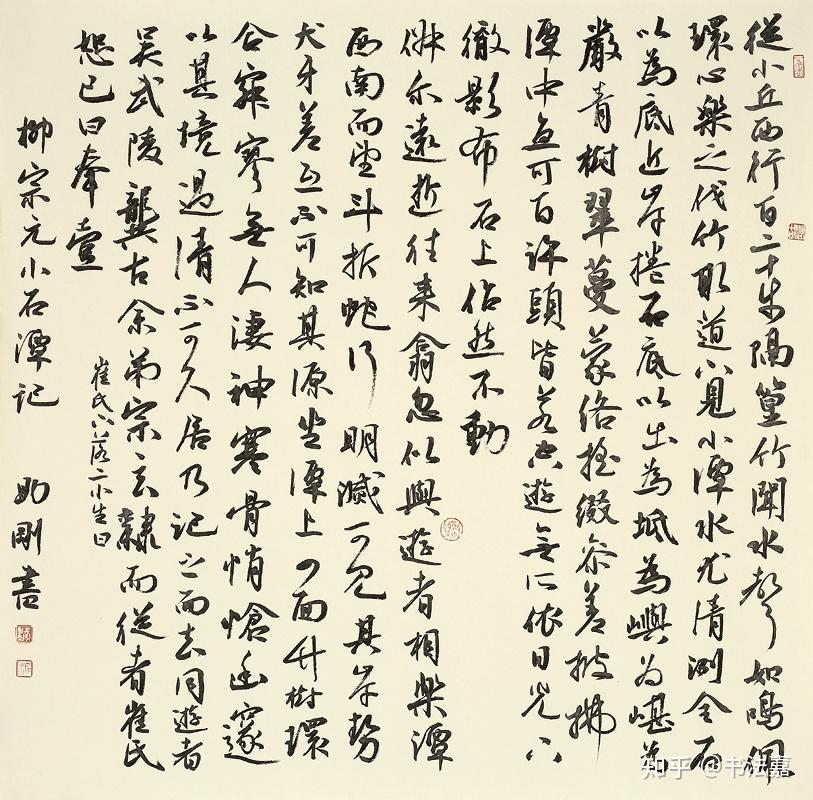 從小丘西行百二十步隔篁竹聞水聲如鳴佩
環心樂之伐竹取道下見小潭水尤清冽全石
以為底近岸捲石底以出為坻為嶼為嵁為
嚴青樹翠蔓蒙絡搖綴參差披拂
潭中魚可百許頭皆若空遊無所依日光下
徹影布石上佁然不動
俶尔遠逝往來翕忽似與遊者相樂潭
西南而望斗折蛇行明滅可見其岸勢
犬牙差互不可知其源坐潭上四面竹樹環
合寂寥無人淒神寒骨悄愴幽邃
以其境過清不可久居乃記之而去同遊者
吳武陵龔古余弟宗玄隸而從者崔氏
恕己曰奉壹
崔氏下落二小生曰
柳宗元小石潭記 助剛書
知乎 @书法嘉